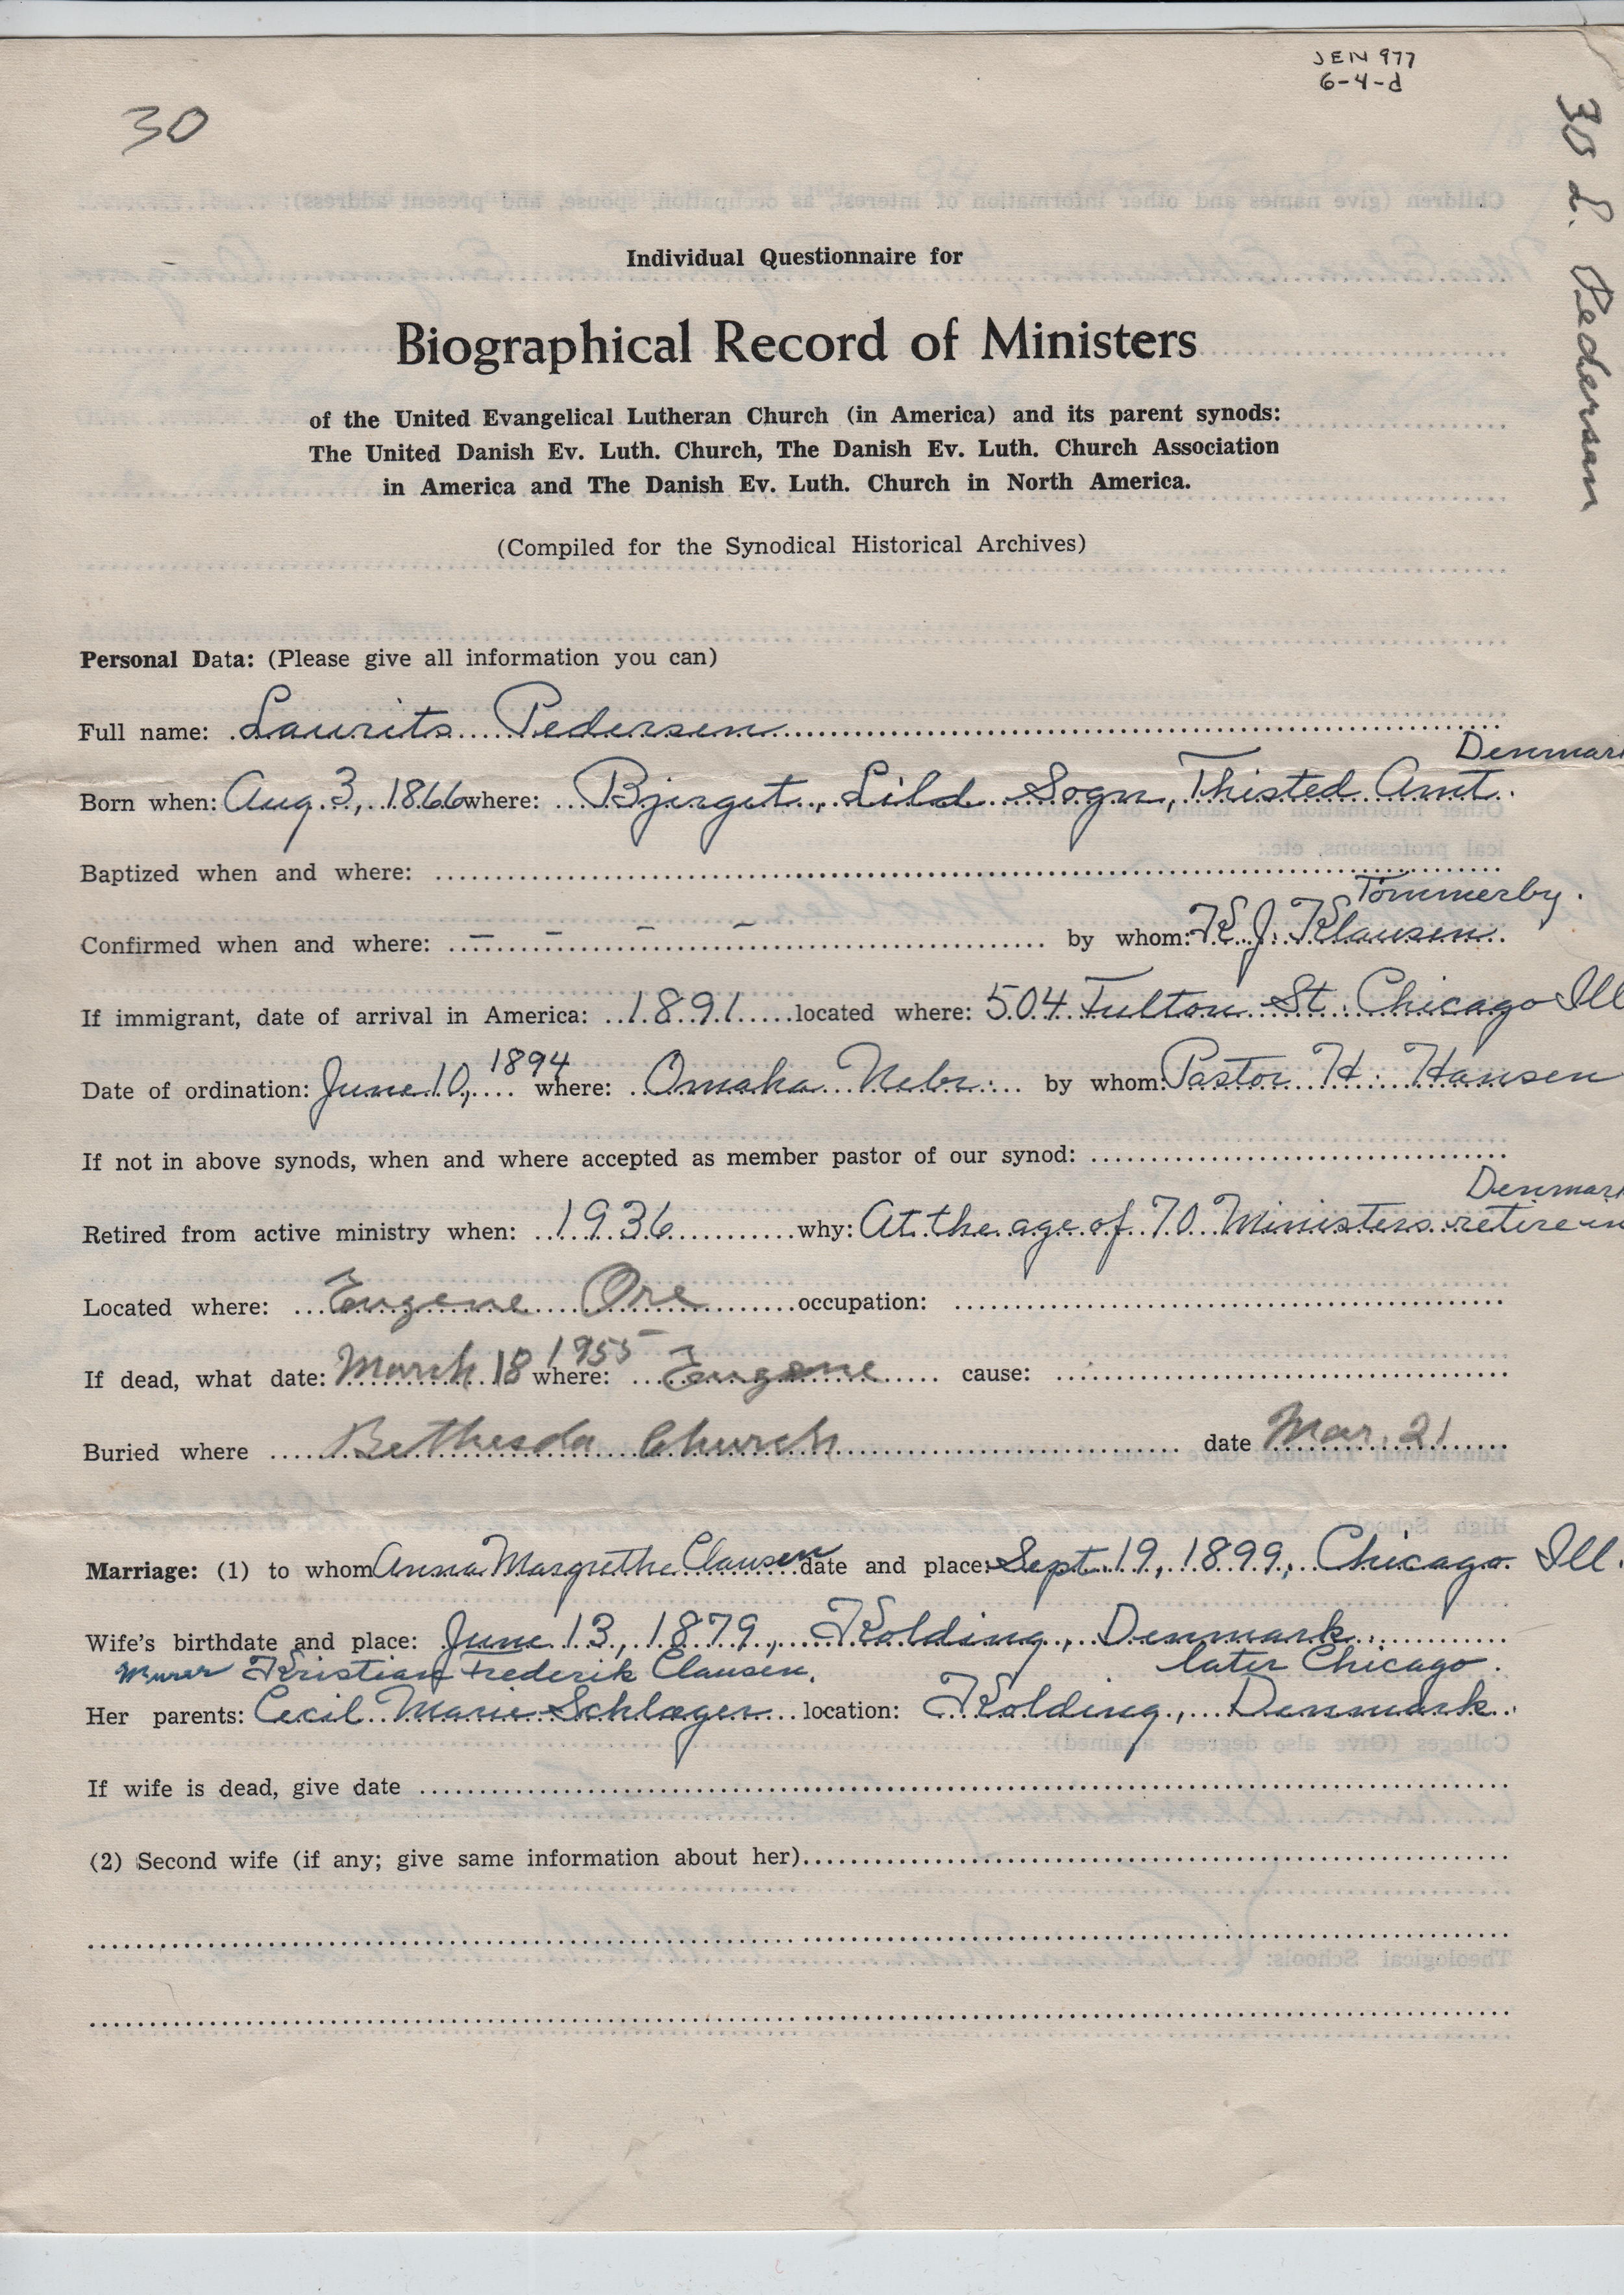 JEN 977
6-4-d
30
30 L. Pedersen
Individual Questionnaire for
Biographical Record of Ministers
of the United Evangelical Lutheran Church (in America) and its parent synods:
The United Danish Ev. Luth. Church, The Danish Ev. Luth. Church Association
in America and The Danish Ev. Luth. Church in North America.
(Compiled for the Synodical Historical Archives)
Personal Data: (Please give all information you can)
Full name: Laurits Pedersen
Denmark
Born when: Aug. 3, 1866 where: Bjerget, Lild Sogn, Thisted Amt.
Baptized when and where:
Tömmerby.
Confirmed when and where: – – – – by whom: K. J. Klausen
If immigrant, date of arrival in America: 1891 located where: 504 Fulton St. Chicago Ill
1894
Date of ordination: June 10, where: Omaha Nebr. by whom: Pastor H. Hansen
If not in above synods, when and where accepted as member pastor of our synod:
Denmark
Retired from active ministry when: 1936 why: At the age of 70 Ministers retire in
Located where: Eugene Ore occupation:
1955
If dead, what date: March 18 where: Eugene cause:
Buried where Bethesda Church date Mar. 21
Marriage: (1) to whom Anna Margrethe Clausen date and place: Sept. 19, 1899, Chicago Ill.
Wife's birthdate and place: June 13, 1879, Kolding, Denmark
Murer Kristian Frederik Clausen. later Chicago.
Her parents: Cecil Marie Schlager location: Kolding, Denmark.
If wife is dead, give date
(2) Second wife (if any; give same information about her)